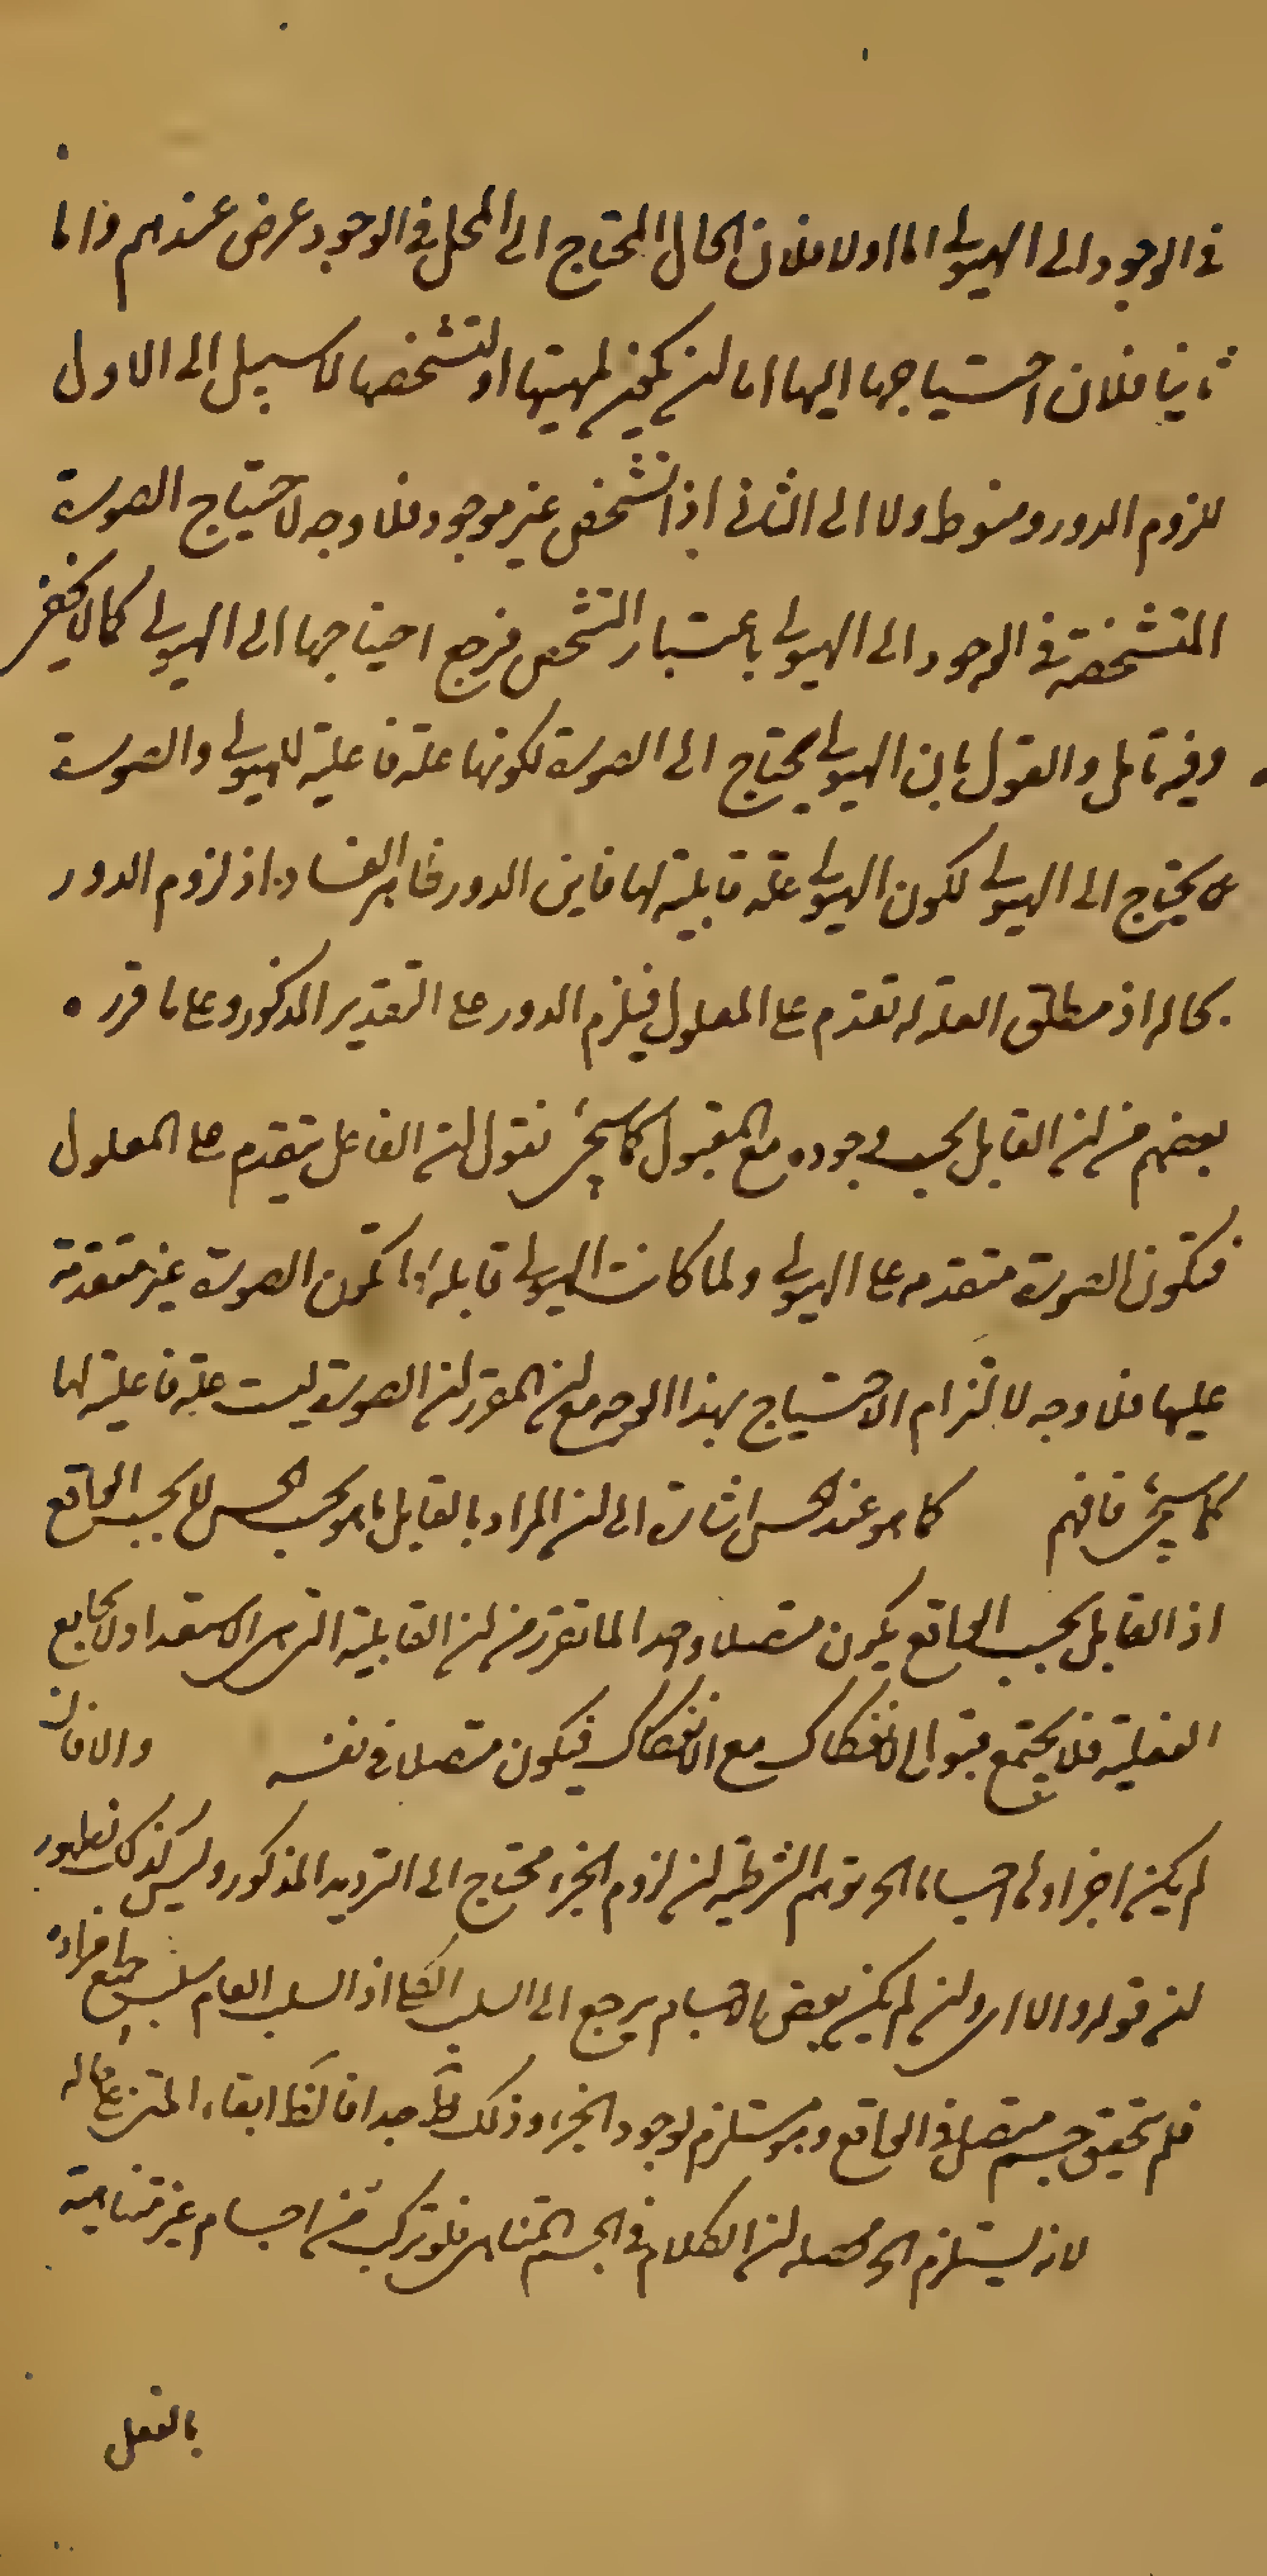 في الوجود الى الهيولى اما اولا فلان الحال المحتاج الى المحل في الوجود عرض عندهم واما
ثانيا فلان احتياجها اليها اما ان يكون لمهيتها او لتشخصها لا سبيل الى الاول
للزوم الدور ولا الى الثاني اذ التشخص غير موجود فلا وجه لاحتياج الصورة
المتشخصة في الوجود الى الهيولى باعتبار التشخص فرجع احتياجها الى الهيولى كما لا يخفى
وفيه تامل والقول بان الهيولى يحتاج الى الصورة لكونها علة فاعلية للهيولى والصورة
يحتاج الى الهيولى لكون الهيولى علة قابلية لها فاين الدور ظاهر الفساد اذ لزوم الدور
بحاله اذ مطلق العلة له تقدم على المعلول فيلزم الدور على التقدير المذكور وعلى ما قرره
بعضهم من ان القابل يجب وجوده مع المقبول كما سيجئ نقول ان الفاعل يتقدم على المعلول
فتكون الصورة متقدمه على الهيولى ولما كانت الهيولى قابلة لها تكون الصورة غير متقدمة
عليها فلا وجه لالتزام الاحتياج بهذا الوجه مع ان المقرر ان الصورة ليست علة فاعلية لها
كما سيجئ فافهم كما هو عند الحس اشارة الى ان المراد بالقابل ما هو بحسب الحس لا بحسب الواقع
اذ القابل بحسب الواقع يكون متصلا واحدا لما تقرر من ان القابلية التي هي الاستعداد لا يجامع
الفعلية فلا يجتمع قبول الانفكاك مع الانفكاك فيكون متصلا في نفسه والا فان
لم يكن اجزاؤه اجساما الخ توهم الشرطية ان لزوم الجزء محتاج الى الترديد المذكور وليس كذلك لظهور
ان قوله والا اى وان لم يكن بعض الاجسام يرجع الى السلب الكلى اذ السلب العام سلب جميع افراده
فلم يتحقق جسم متصل في الواقع وهو مستلزم لوجود الجزء وذلك ظ جدا فالظ ابقاء المتن على حاله
لانه يستلزم الخ محصله ان الكلام في الجسم المتناهى فلو تركب من اجسام غير متناهية
بالفعل